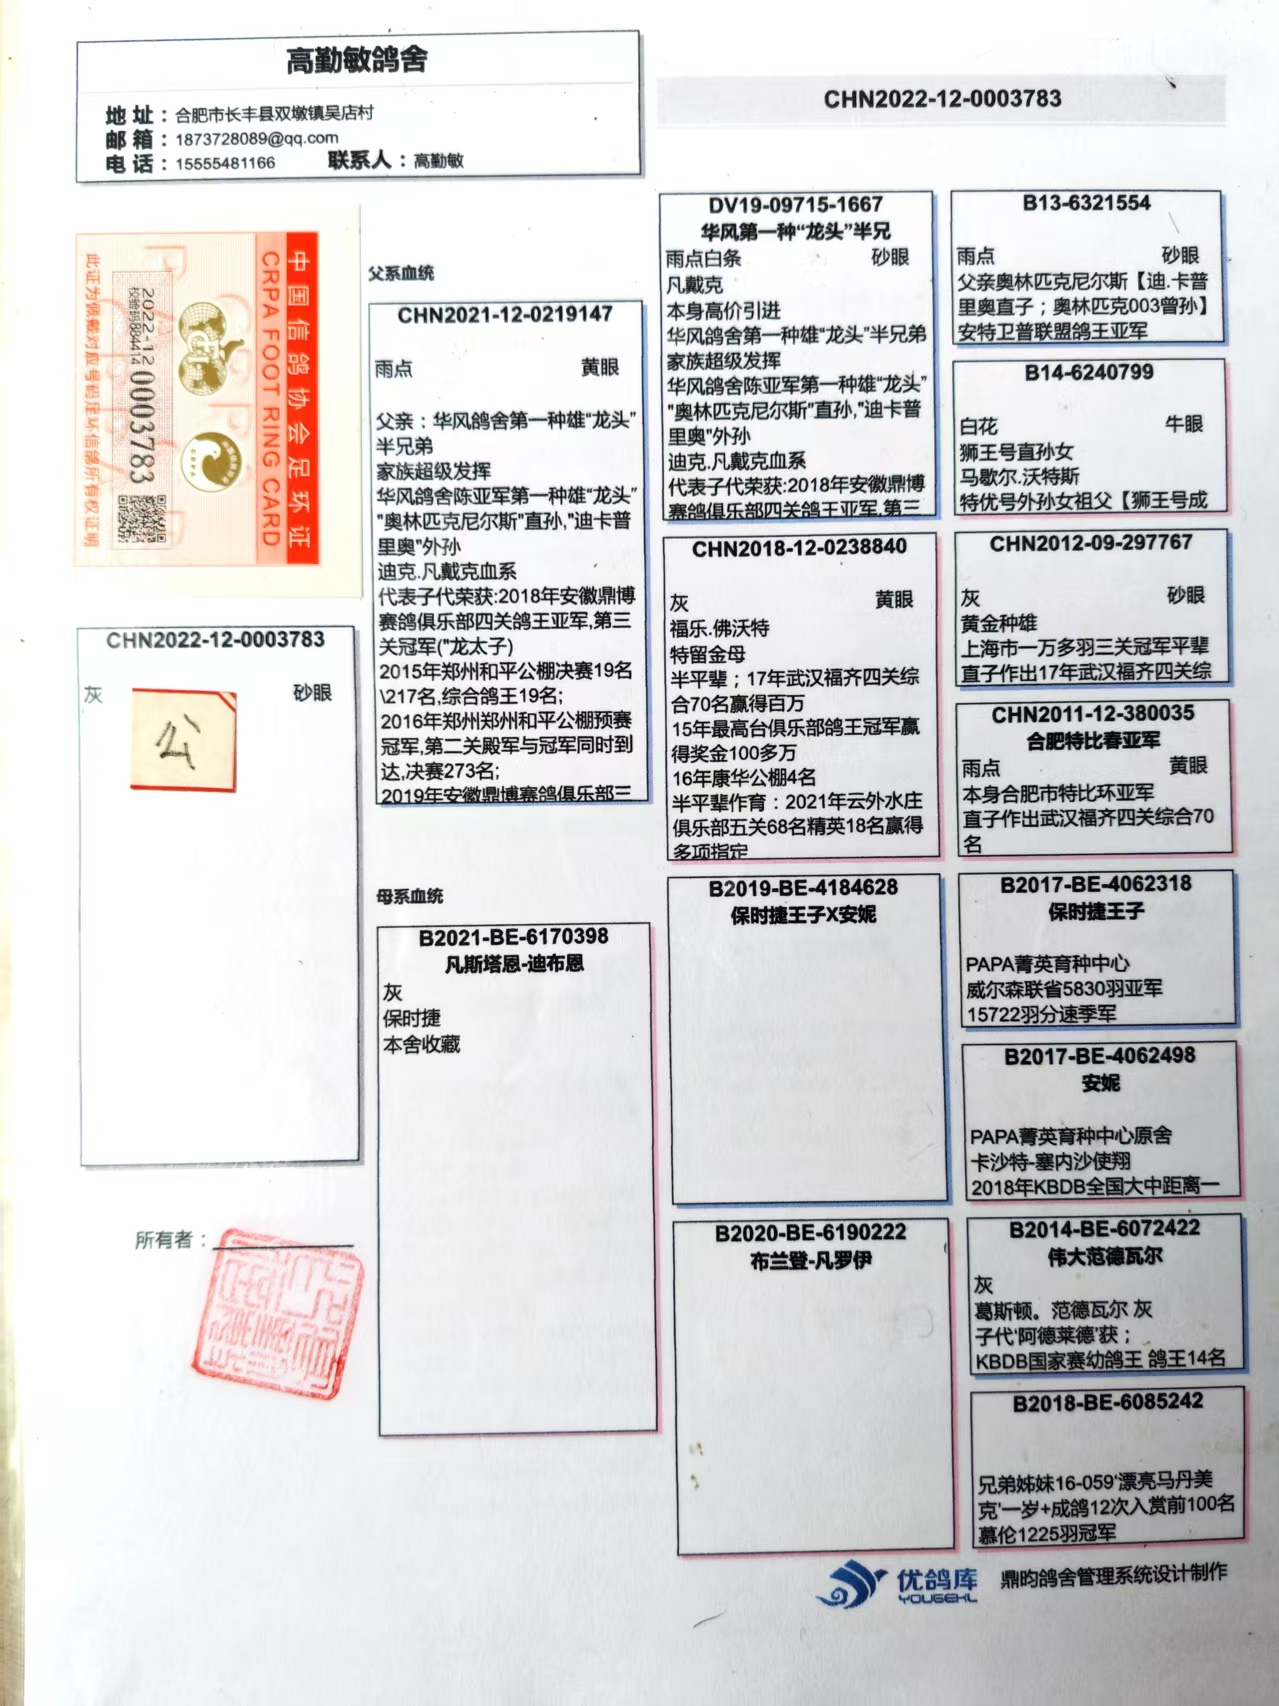 高勤敏鸽舍
地 址：合肥市长丰县双墩镇吴店村
邮 箱：1873728089@qq.com
电 话：15555481166 联系人：高勤敏
CHN2022-12-0003783
中国信鸽协会足环证
CRPA FOOT RING CARD
2022-12 0003783
校验码884414
此证为佩戴对应号码足环信鸽所有权证明
CHN2022-12-0003783
灰 砂眼
公
所有者：
父系血统
CHN2021-12-0219147
雨点 黄眼
父亲：华风鸽舍第一种雄“龙头”
半兄弟
家族超级发挥
华风鸽舍陈亚军第一种雄“龙头”
"奥林匹克尼尔斯"直孙,"迪卡普
里奥"外孙
迪克.凡戴克血系
代表子代荣获:2018年安徽鼎博
赛鸽俱乐部四关鸽王亚军,第三
关冠军("龙太子)
2015年郑州和平公棚决赛19名
\217名,综合鸽王19名;
2016年郑州郑州和平公棚预赛
冠军,第二关殿军与冠军同时到
达,决赛273名;
2019年安徽鼎博赛鸽俱乐部三
母系血统
B2021-BE-6170398
凡斯塔恩-迪布恩
灰
保时捷
本舍收藏
DV19-09715-1667
华风第一种“龙头”半兄
雨点白条 砂眼
凡戴克
本身高价引进
华风鸽舍第一种雄“龙头”半兄弟
家族超级发挥
华风鸽舍陈亚军第一种雄“龙头”
"奥林匹克尼尔斯"直孙,"迪卡普
里奥"外孙
迪克.凡戴克血系
代表子代荣获:2018年安徽鼎博
赛鸽俱乐部四关鸽王亚军,第三
CHN2018-12-0238840
灰 黄眼
福乐.佛沃特
特留金母
半平辈；17年武汉福齐四关综
合70名赢得百万
15年最高台俱乐部鸽王冠军赢
得奖金100多万
16年康华公棚4名
半平辈作育：2021年云外水庄
俱乐部五关68名精英18名赢得
多项指定
B2019-BE-4184628
保时捷王子X安妮
B2020-BE-6190222
布兰登-凡罗伊
B13-6321554
雨点 砂眼
父亲奥林匹克尼尔斯【迪.卡普
里奥直子；奥林匹克003曾孙】
安特卫普联盟鸽王亚军
B14-6240799
白花 牛眼
狮王号直孙女
马歇尔.沃特斯
特优号外孙女祖父【狮王号成
CHN2012-09-297767
灰 砂眼
黄金种雄
上海市一万多羽三关冠军平辈
直子作出17年武汉福齐四关综
CHN2011-12-380035
合肥特比春亚军
雨点 黄眼
本身合肥市特比环亚军
直子作出武汉福齐四关综合70
名
B2017-BE-4062318
保时捷王子
PAPA菁英育种中心
威尔森联省5830羽亚军
15722羽分速季军
B2017-BE-4062498
安妮
PAPA菁英育种中心原舍
卡沙特-塞内沙使翔
2018年KBDB全国大中距离一
B2014-BE-6072422
伟大范德瓦尔
灰
葛斯顿。范德瓦尔 灰
子代'阿德莱德'获；
KBDB国家赛幼鸽王 鸽王14名
B2018-BE-6085242
兄弟姊妹16-059'漂亮马丹美
克'一岁+成鸽12次入赏前100名
慕伦1225羽冠军
优鸽库
YOUGEKU
鼎昀鸽舍管理系统设计制作